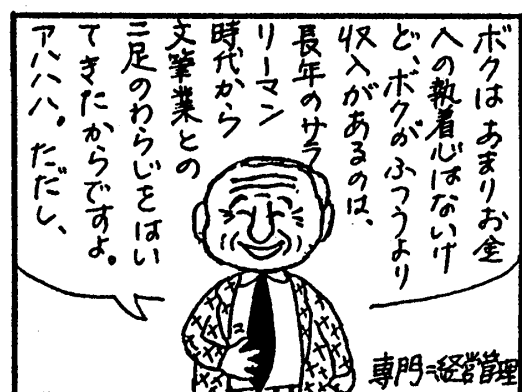 ボクはあまりお金
への執着心はないけ
ど、ボクがふつうより
収入があるのは、
長年のサラ
リーマン
時代から
文筆業との
二足のわらじをはい
てきたからですよ。
アハハハ。ただし、
専門=経営管理